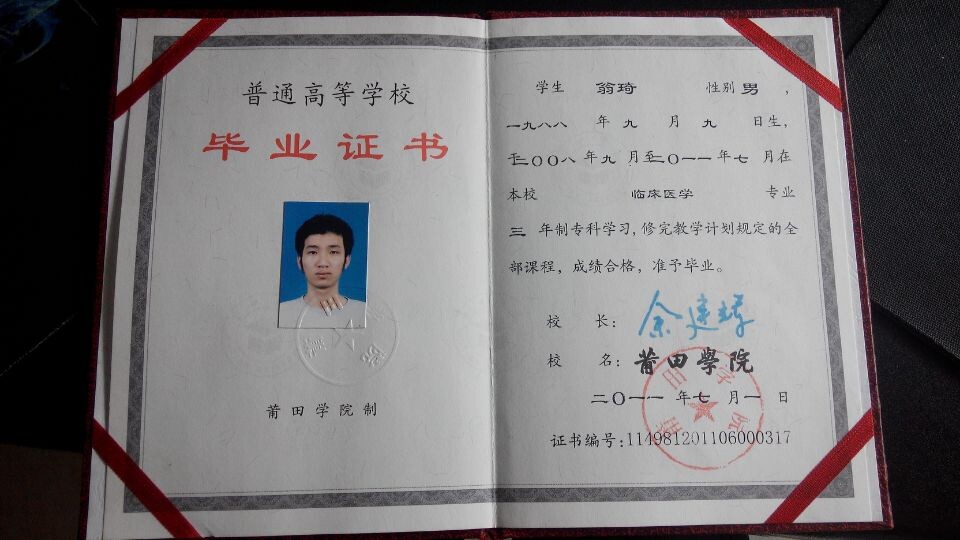 普通高等学校
毕业证书
莆田学院制
学生 翁琦 性别 男，
一九八八 年 九 月 九 日生，
于二〇〇八年九月至二〇一一年七月在
本校 临床医学 专业
三 年制专科学习，修完教学计划规定的全
部课程，成绩合格，准予毕业。
校 长：
校 名：莆田學院
二〇一一年七月一日
证书编号：114981201106000317
莆田学院